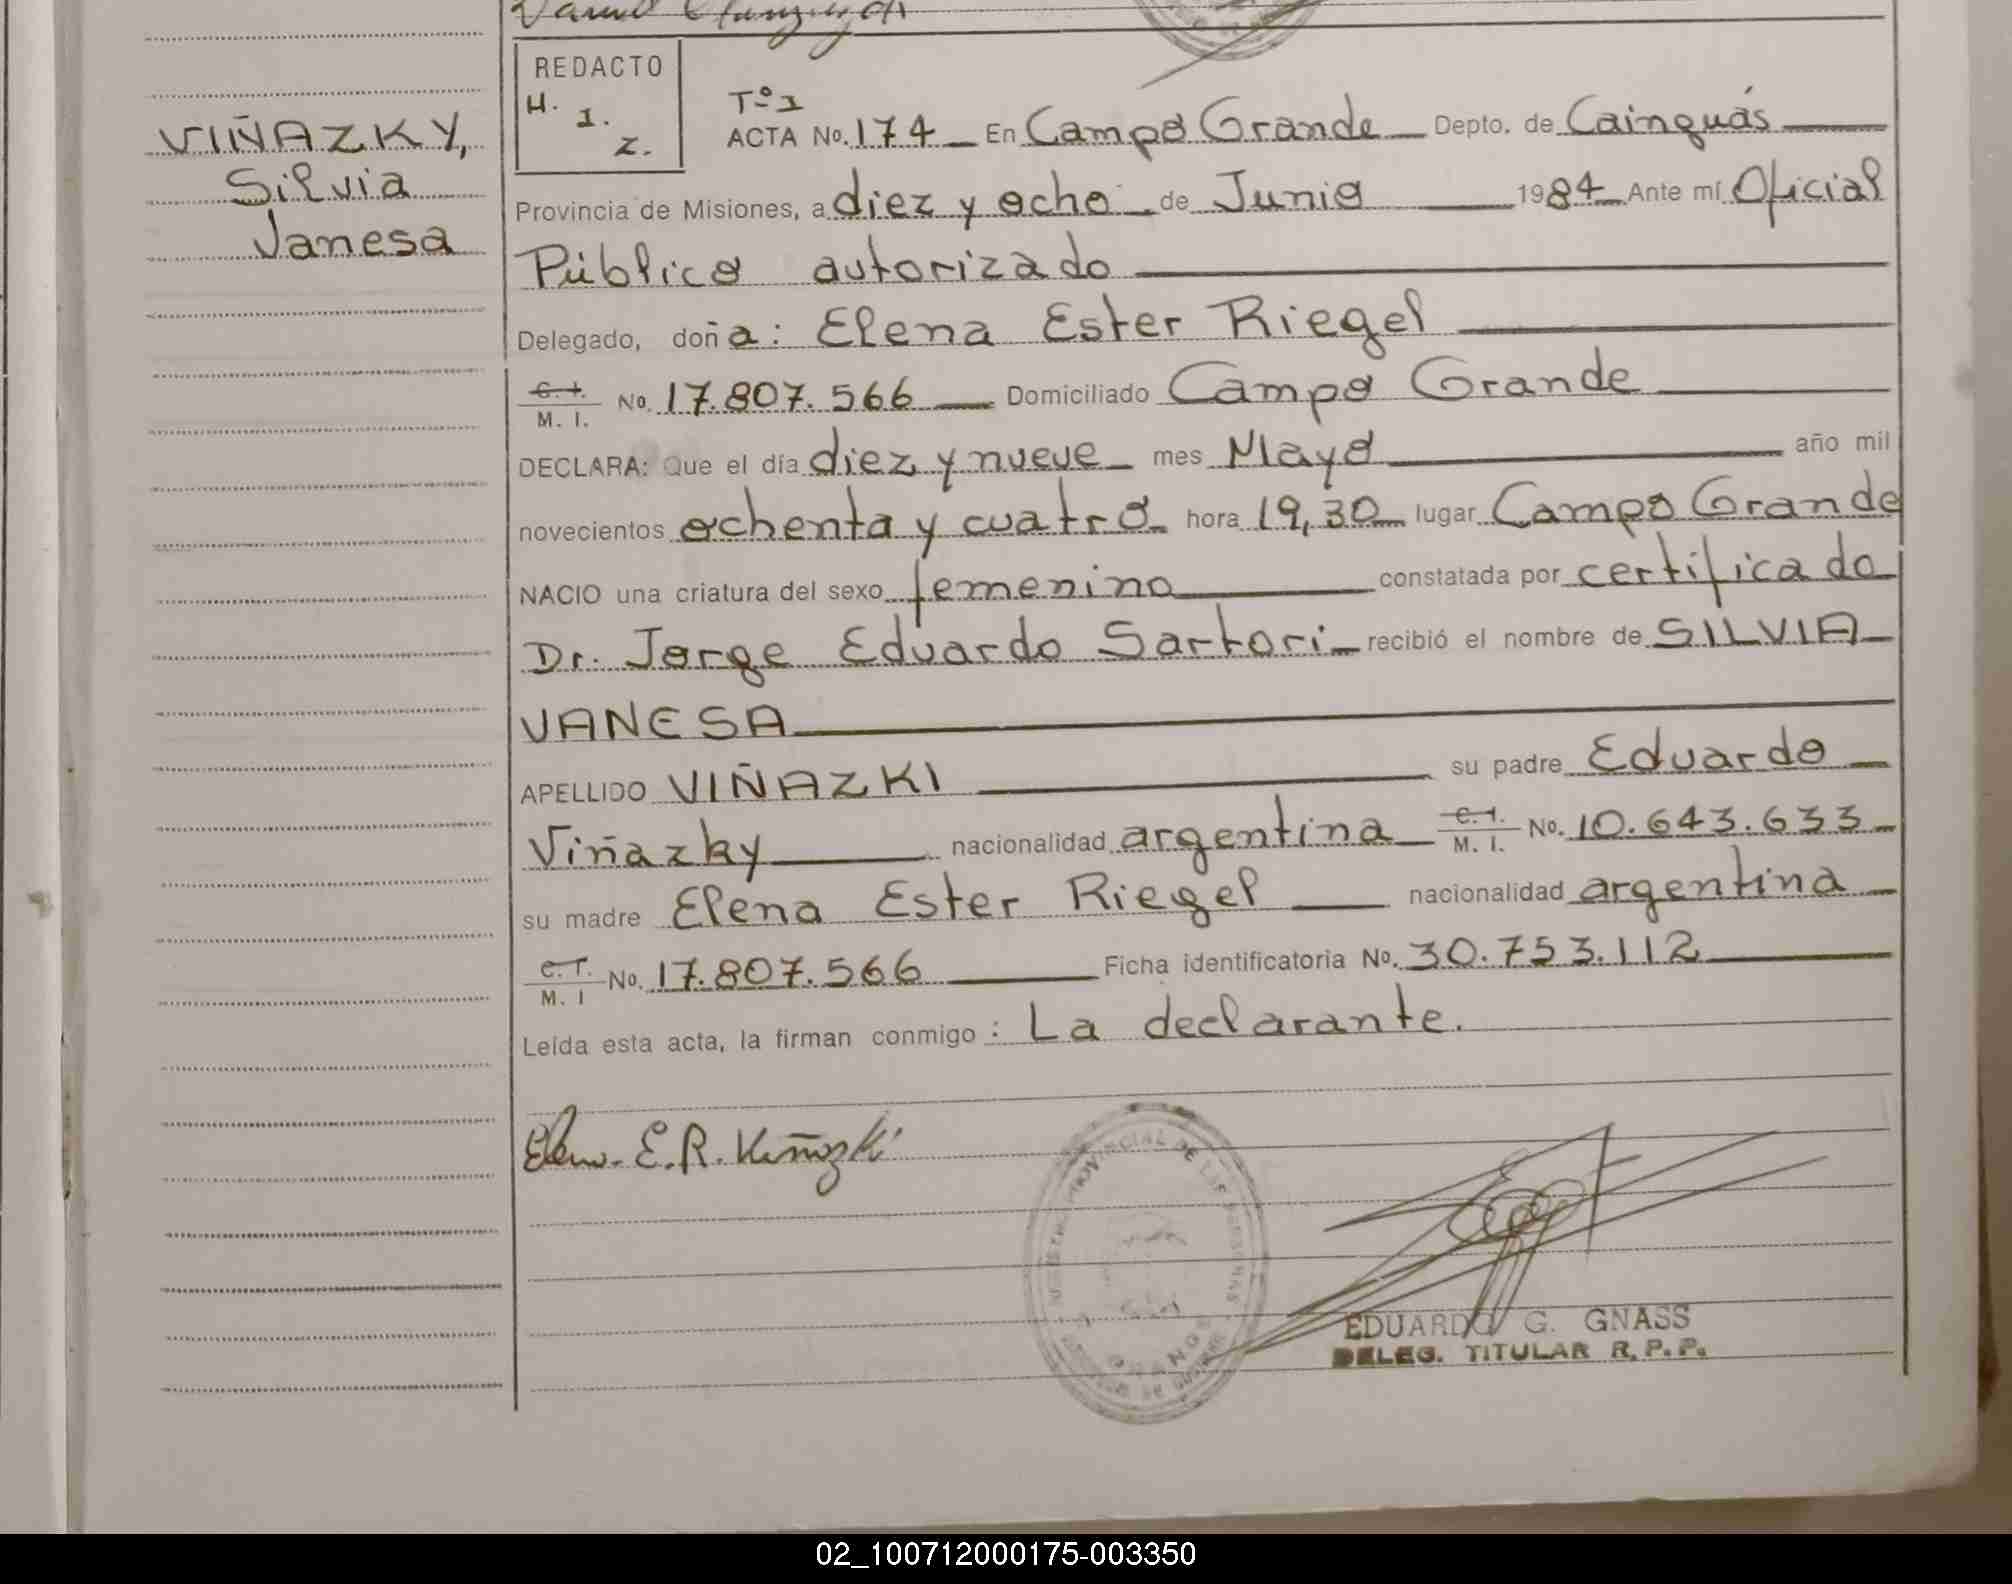 REDACTO
H. I. Z.
VIÑAZKY,
Silvia
Vanesa
Tº I
ACTA No. 174 En Campo Grande Depto. de Cainguás
Provincia de Misiones, a diez y ocho de Junio 1984 Ante mí Oficial
Público autorizado
Delegado, doña: Elena Ester Riegel
C. I. / M. I. No. 17.807.566 Domiciliado Campo Grande
DECLARA: Que el día diez y nueve mes Mayo año mil
novecientos ochenta y cuatro hora 19,30 lugar Campo Grande
NACIO una criatura del sexo femenino constatada por certificado
Dr. Jorge Eduardo Sartori recibió el nombre de SILVIA
VANESA
APELLIDO VIÑAZKI su padre Eduardo
Viñazky nacionalidad argentina C. I. / M. I. No. 10.643.633
su madre Elena Ester Riegel nacionalidad argentina
C. I. / M. I No. 17.807.566 Ficha identificatoria No. 30.753.112
Leída esta acta, la firman conmigo: La declarante.
Elena E. R. Viñazki
PROVINCIAL DE LAS PERSONAS
GRANDE
EDUARDO G. GNASS
DELEG. TITULAR R. P. P.
02_100712000175-003350